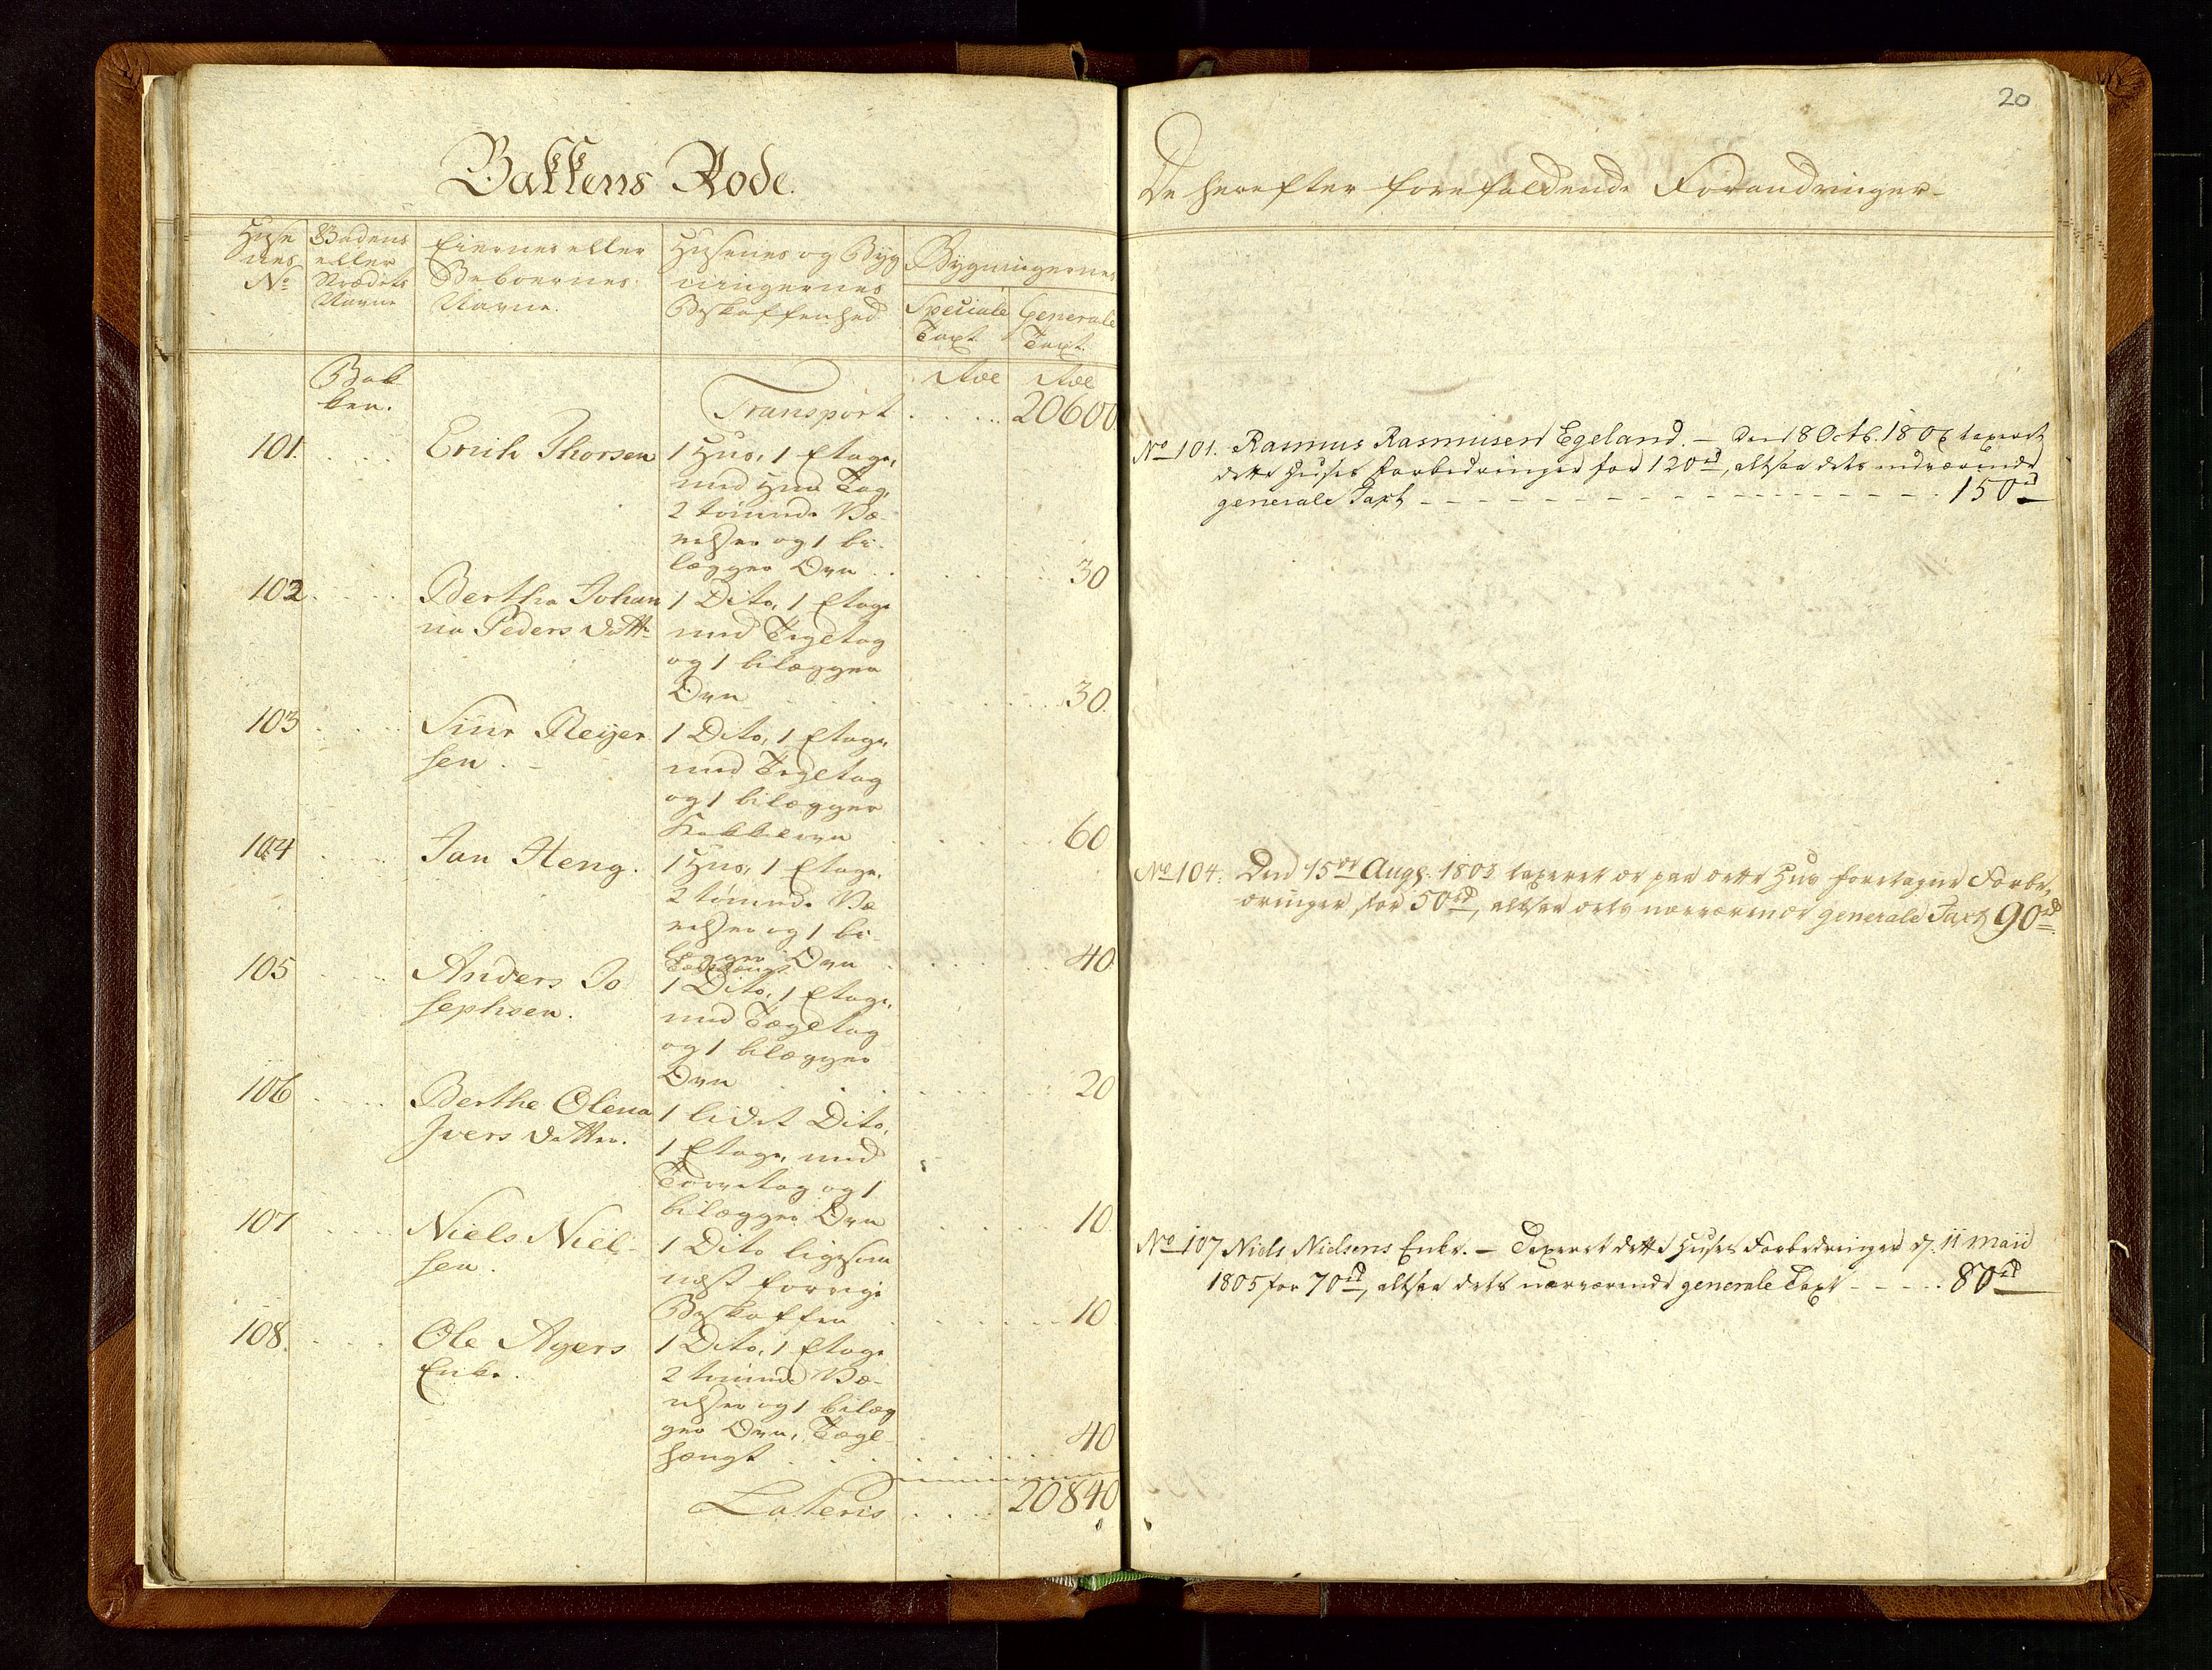 Bakkens Rode.
Huse
nes
No
Gadens
eller
Strædets
Navne
Eiernes eller
Beboernes
Navne.
Husenes og Byg
ningernes
Beskaffenhed
Bygningernes
Speciale
Taxt
Generale
Taxt.
Bak
ken.
Rdl
Rdl
Transport . . . . . 20600.
101. . . . Erich Thorsen
1 Huus, 1 Etage,
med Tag,
2 tømrede Væ-
relser og 1 bi-
lægger Ovn . . 30
102. . . . Bertha Johan
na Peders Datt.
1 Dito, 1 Etage
med Tegltag
og 1 bilægger
Ovn . . . 30.
103 . . . Siur Reijer
sen. -
1 Dito, 1 Etage,
med Tegltag
og 1 bilægger
Kakkelovn . . 60
104 . . . Jan Heng.
1 Huus, 1 Etage,
2 tømrede Væ
relser og 1 bi-
lægger Ovn . . 40
Teglhængt
105 . . . Anders Jo
sephsen.
1 Dito, 1 Etage,
med Tægltag
og 1 bilægger
Ovn . . . 20
106 . . . Berthe Olena
Ivers Datter.
1 lidet Dito,
1 Etage, med
Torvetag og 1
bilægger Ovn . . 10.
107 . . . Niels Niel-
sen.
1 Dito ligesom
næst forrige
Beskaffen . . 10
108. . . . Ole Agers
Enke.
1 Dito, 1 Etage
2 tømrede Væ-
relser og 1 bilæg
ger Ovn, Tægl-
hængt . . . 40
Lateris . . . . 20840
20
De herefter forefaldende Forandringer.
No 101. Rasmus Rasmusen Egeland. - Den 8 Octb. 1806 taxeret
dette Huses Forbedringer for 120 rd, altsaa dets nuværende
generale Taxt - - - - 150 rd
No 104. Den 15de Aug. 1803 taxeret de paa dette Huus foretagne Forbe-
dringer for 50 rd, altsaa dets nærværende generale Taxt 90 rd
No 107 Niels Nielsens Enke. - Taxeret dette Huses Forbedringer d. 11 Maii
1805 for 70 rd, altsaa dets nærværende generale Taxt - - - - 80 rd